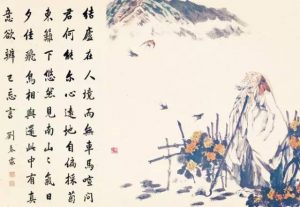 結廬在人境而無車馬喧問
君何能尔心遠地自偏採菊
東籬下悠然見南山〻氣日
夕佳飛鳥相與還此中有真
意欲辨已忘言 劉春霖